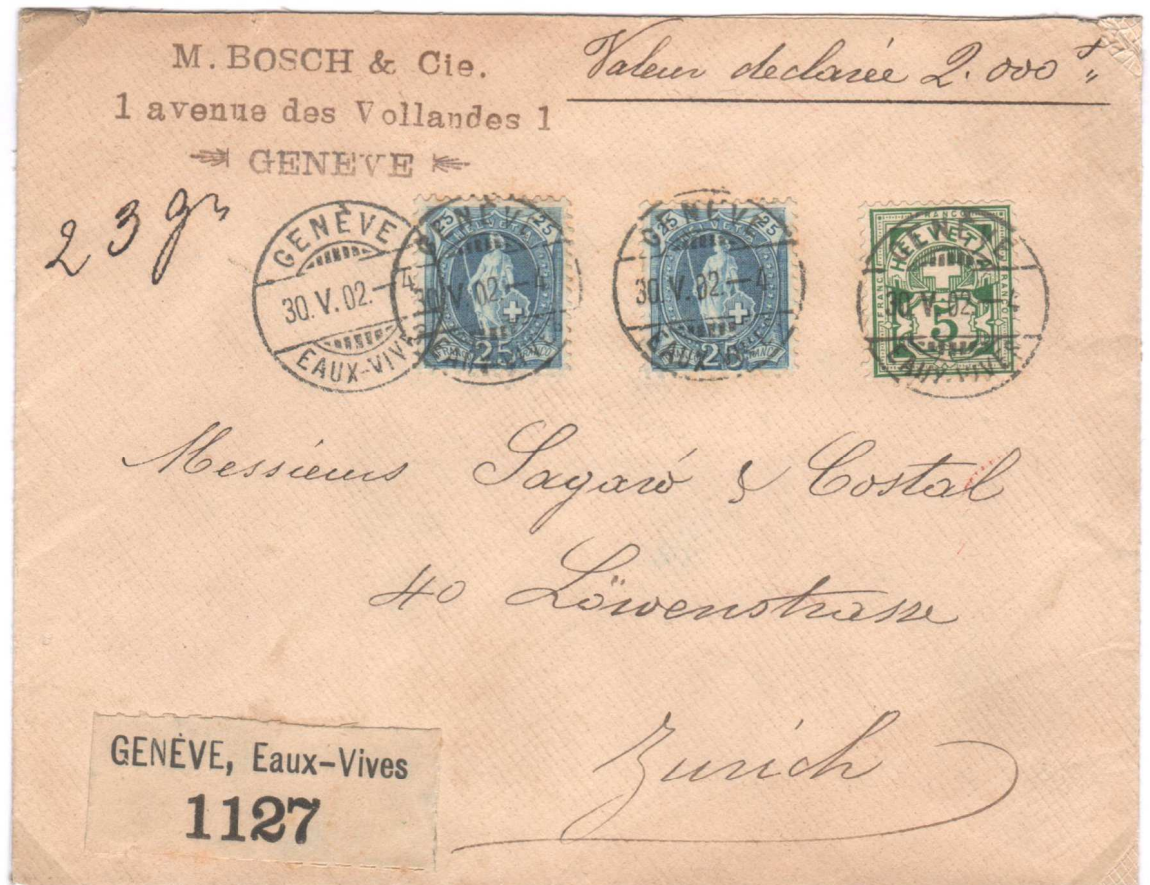 M. BOSCH & Cie.
1 avenue des Vollandes 1
GENEVE
Valeur declarée 2.000 f
23 gr
GENÈVE
30.V.02.–4
EAUX-VIVES
25 25
GENÈVE
30.V.02.–4
EAUX-VIVES
25
FRANCO
25 25
GENÈVE
30.V.02.–4
EAUX-VIVES
25
FRANCO
FRANCO
30.V.02.–4
5
EAUX-VIVES
Messieurs Sagaró & Costal
40 Löwenstrasse
Zurich
GENÈVE, Eaux-Vives
1127